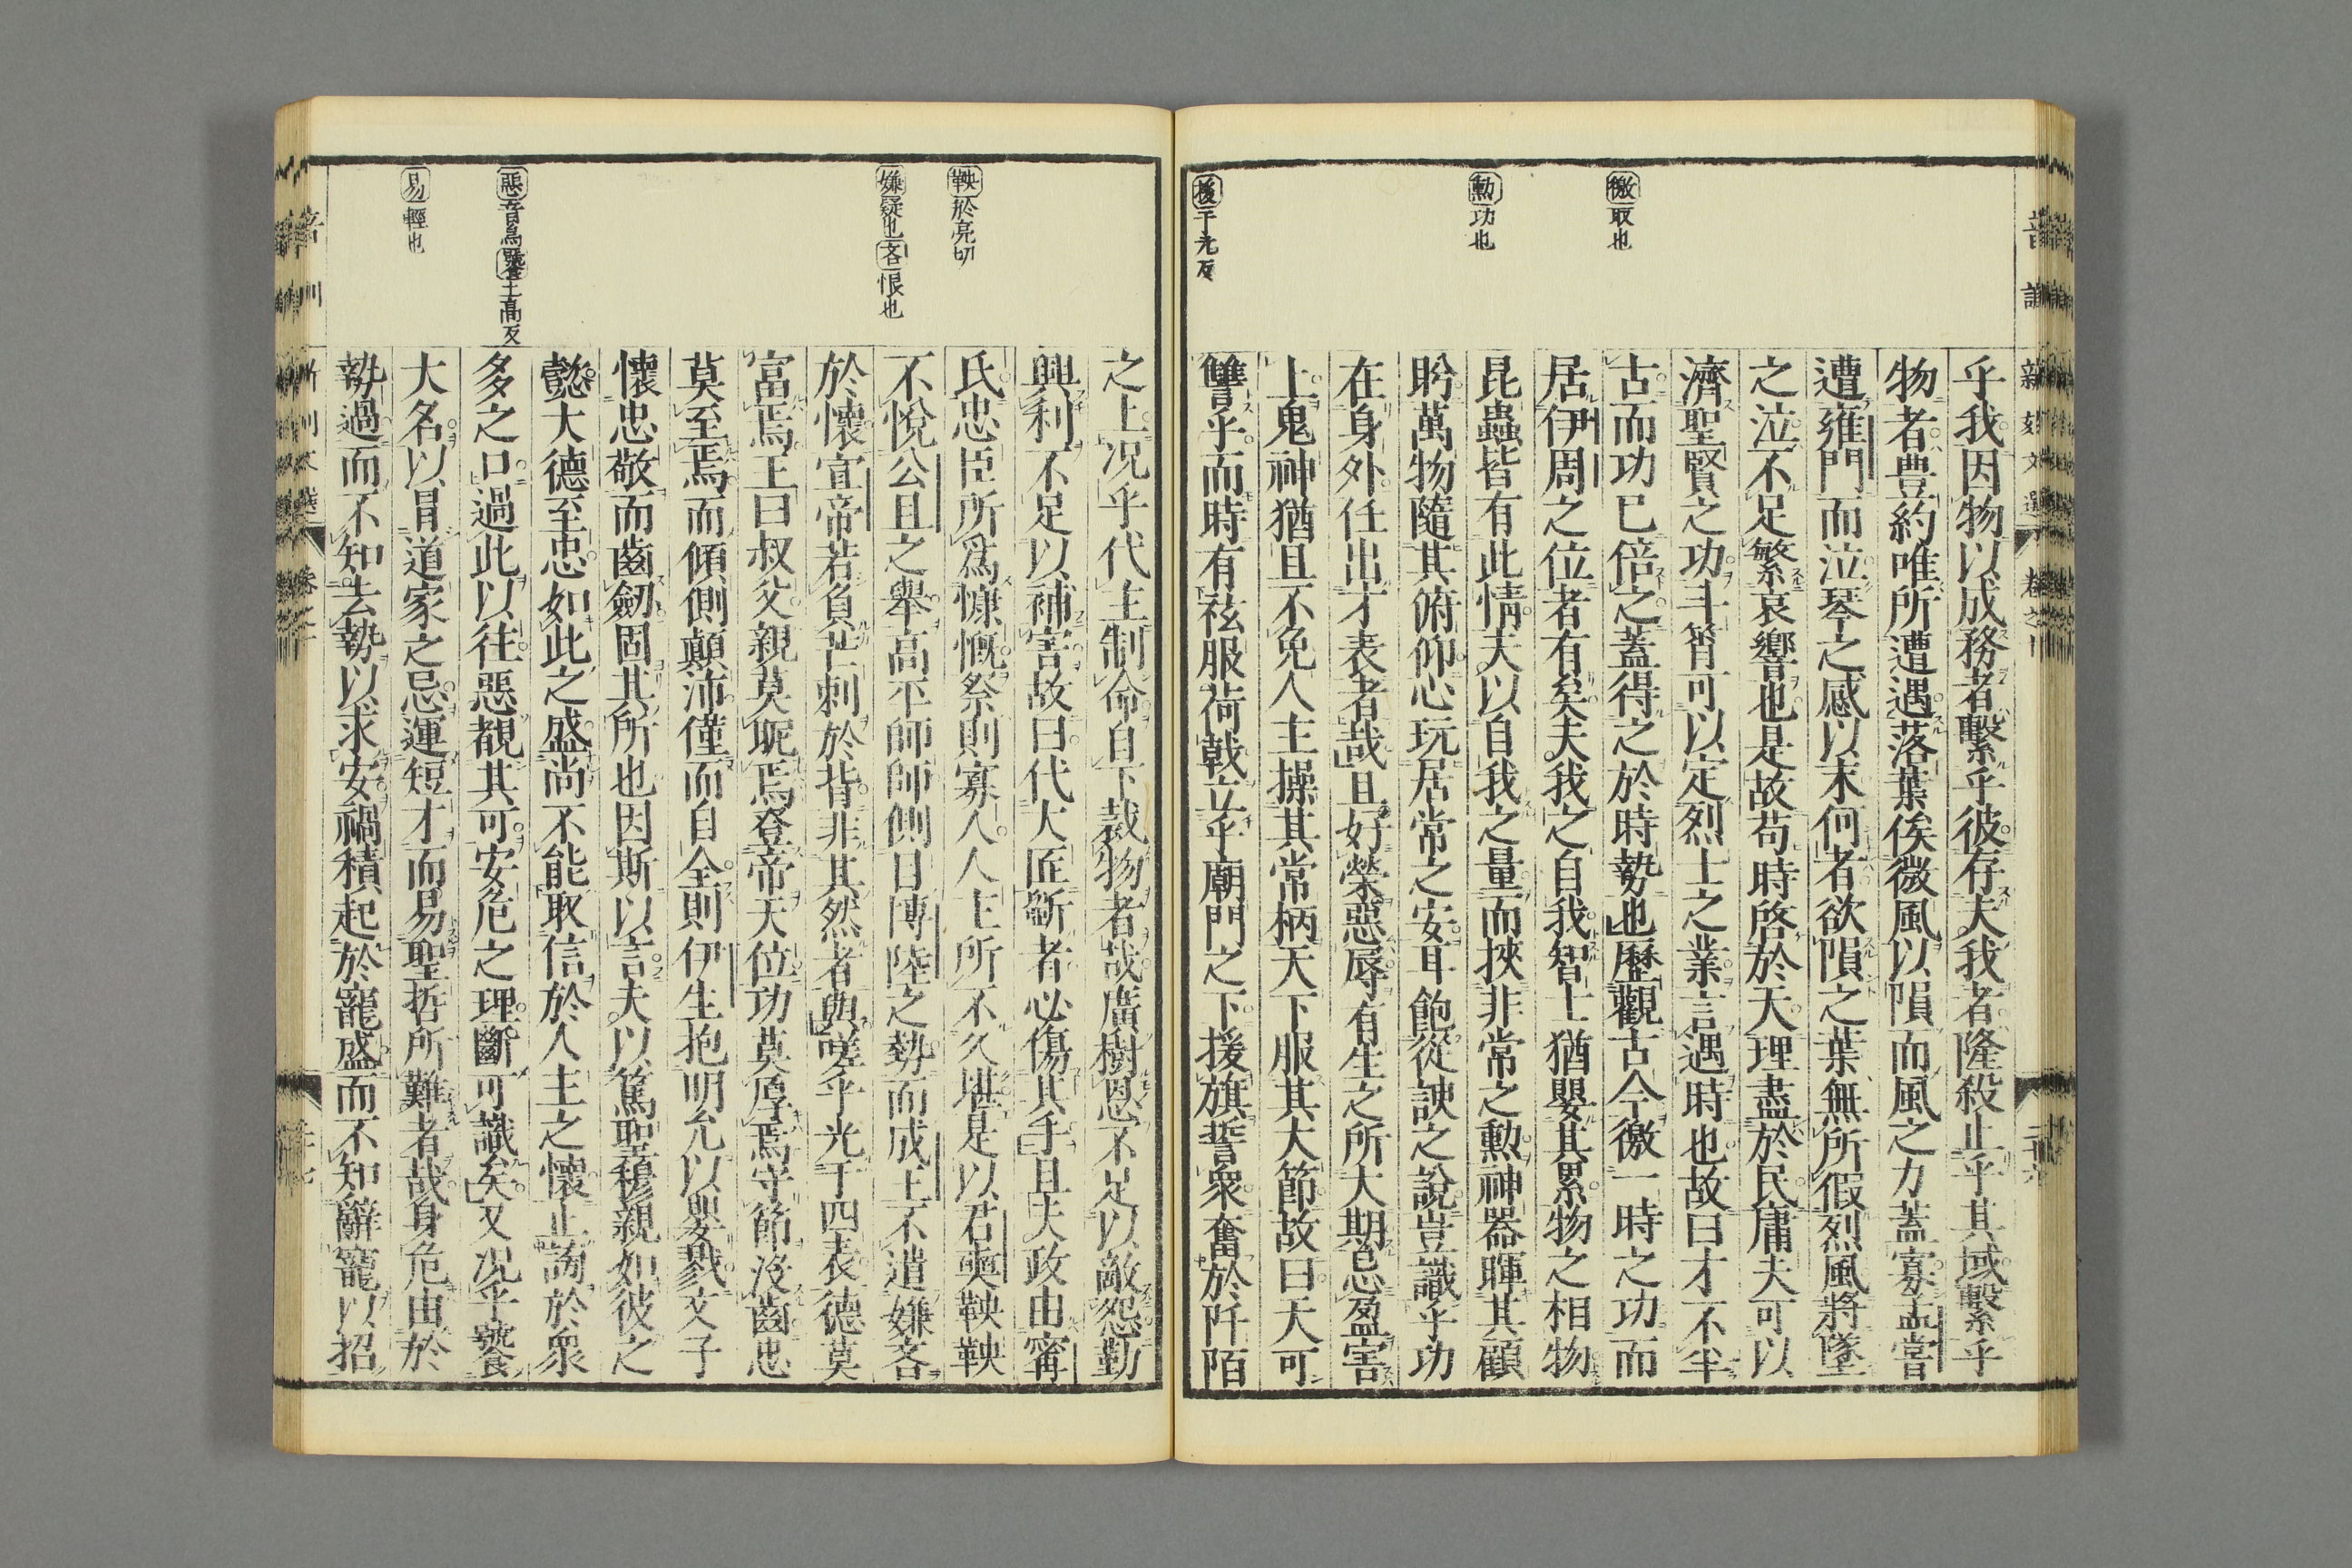 徼取也
勲功也
援于元反
乎我因物以成務者繫乎彼存夫我者隆殺止乎其域繫乎
物者豊約唯所遭遇落葉俟微風以隕而風之力蓋寡孟嘗
遭雍門而泣琴之感以末何者欲隕之葉無所假烈風將墜
之泣不足繁哀響也是故苟時啓於天理盡於民庸夫可以
濟聖賢之功斗筲可以定烈士之業言遇時也故曰才不半
古而功已倍之蓋得之於時勢也歷觀古今徼一時之功而
居伊周之位者有矣夫我之自我智士猶嬰其累物之相物
昆蟲皆有此情夫以自我之量而挾非常之勲神器暉其顧
眄萬物隨其俯仰心玩居常之安耳飽從諛之說豈識乎功
在身外任出才表者哉且好榮惡辱有生之所大期忌盈害
上鬼神猶且不免人主操其常柄天下服其大節故曰天可
讐乎而時有袨服荷戟立乎廟門之下援旗誓衆奮於阡陌
鞅於亮切
嫌疑也吝恨也
惡音烏饕土高反
易輕也
之上况乎代主制命自下裁物者哉廣樹恩不足以敵怨勤
興利不足以補害故曰代大匠斵者必傷其手且夫政由甯
氏忠臣所爲慷慨祭則寡人人主所不久堪是以君奭鞅鞅
不悅公旦之舉高平師師側目博陸之勢而成王不遣嫌吝
於懷宣帝若負芒刺於背非其然者與嗟乎光于四表德莫
富焉王曰叔父親莫昵焉登帝天位功莫厚焉守節沒齒忠
莫至焉而傾側顛沛僅而自全則伊生抱明允以嬰戮文子
懷忠敬而齒劒固其所也因斯以言夫以篤聖穆親如彼之
懿大德至忠如此之盛尚不能取信於人主之懷止謗於衆
多之口過此以往惡覩其可安危之理斷可識矣又况乎饕
大名以冒道家之忌運短才而易聖哲所難者哉身危由於
勢過而不知去勢以求安禍積起於寵盛而不知辭寵以招